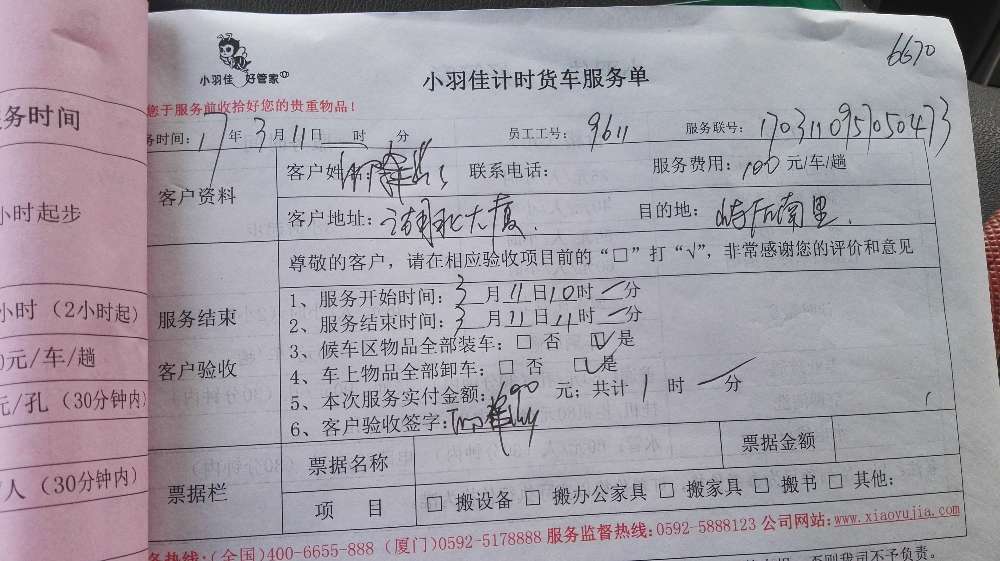 6670
小羽佳 好管家
小羽佳计时货车服务单
您于服务前收拾好您的贵重物品！
务时间：17年3月11日 时 分 员工工号：9611 服务联号：1703110957050473
客户资料
客户姓名： 联系电话： 服务费用：100元/车/趟
客户地址： 大厦 目的地： 南里
尊敬的客户，请在相应验收项目前的“□”打“√”，非常感谢您的评价和意见
服务结束
客户验收
1、服务开始时间：3月11日10时一分
2、服务结束时间：3月11日11时一分
3、候车区物品全部装车：□ 否 □是
4、车上物品全部卸车：□ 否 □是
5、本次服务实付金额： 元；共计1时一分
6、客户验收签字：
票据栏
票据名称 票据金额
项 目 □ 搬设备 □ 搬办公家具 □ 搬家具 □ 搬书 □ 其他：
务热线：(全国)400-6655-888 (厦门)0592-5178888 服务监督热线：0592-5888123 公司网站：www.xiaoyujia.com
否则我司不予负责。
务时间
小时起步
小时（2小时起）
0元/车/趟
元/孔（30分钟内）
/人（30分钟内）